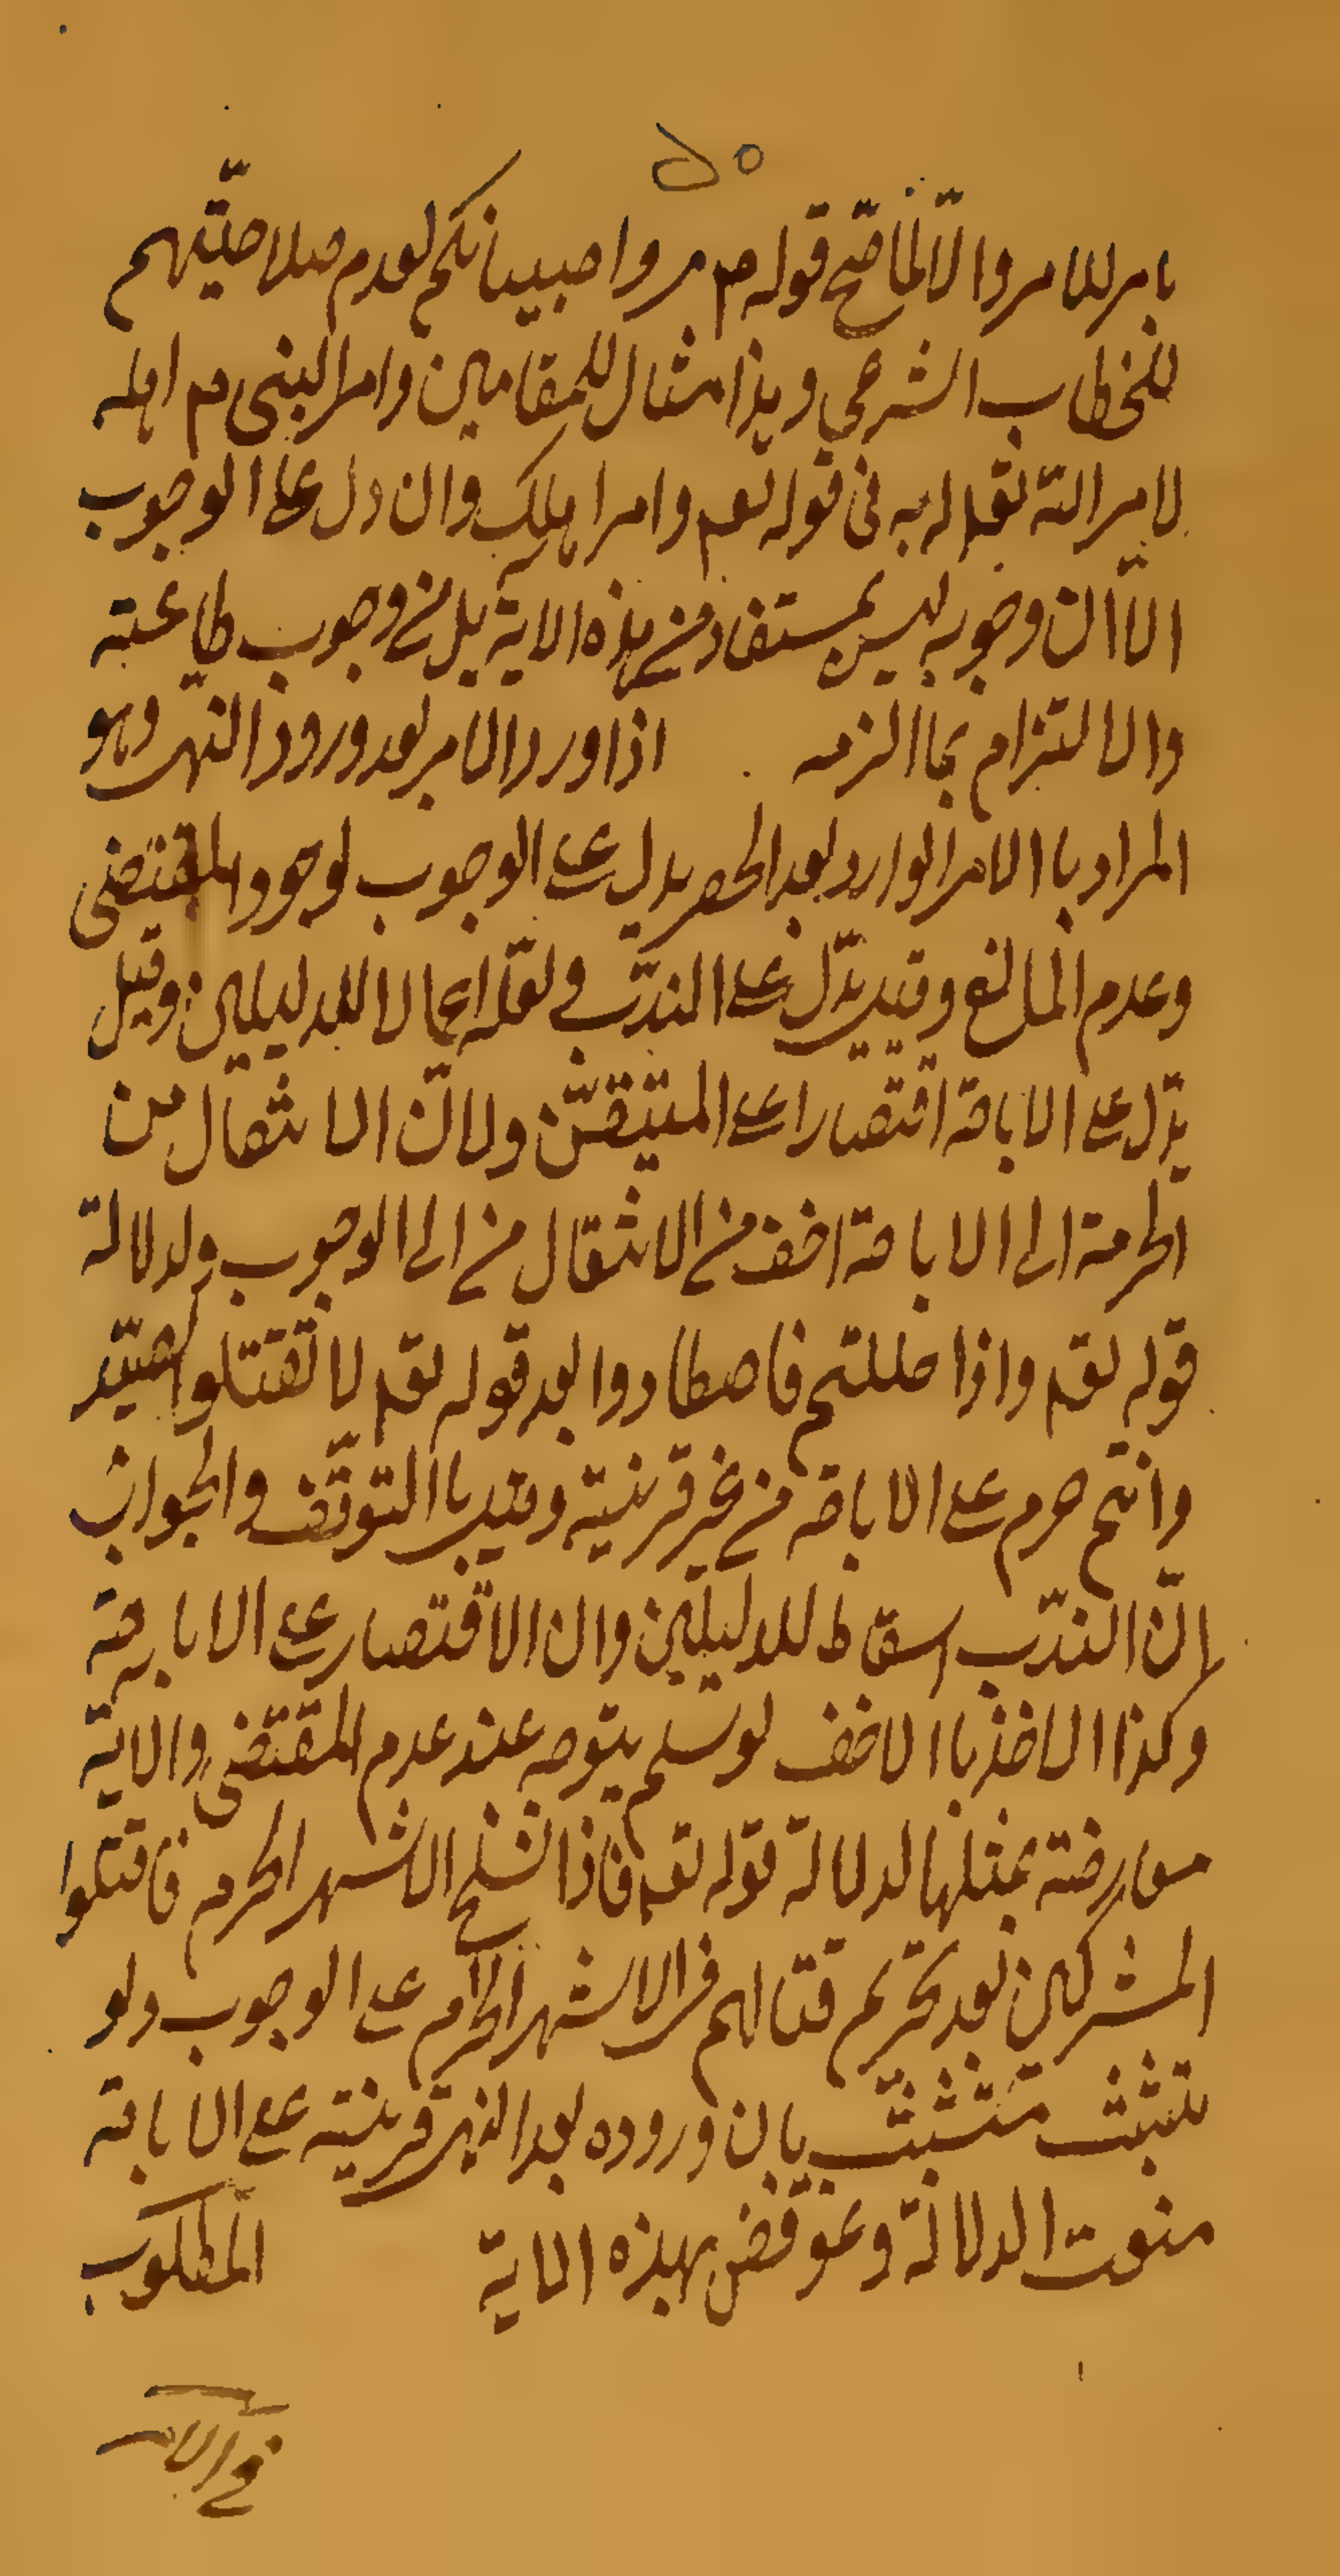 بامر للامروا لالما صّح قوله م مروا صبيانكم لعدم صلاحيّتهم
للخطاب الشرعي وهذا مثال للمقامين وامر النبى م اهله
لامر الله تعا له به فى قوله تعم وامر اهلك وان دل على الوجوب
الّا ان وجوبه ليس بمستفاد من هذه الاية بل من وجوب طاعته
والالتزام بما الزمه اذا ورد الامر بعد ورود النهى وهو
المراد با الامر الوارد بعد الحصر يدل على الوجوب لوجود المقتضى
وعدم المانع وقيل يدّل على الندّب ولعّله اعمالا للدليلين وقيل
يدّل على الاباحة اقتصارا على المتيقّن ولانّ الانتقال من
الحرمة الى الاباحة اخف من الانتقال من الى الوجوب ولدلالة
قوله تعم واذا حللتم فاصطادوا بعد قوله تعم لا تقتلوا الصيّد
وانتم حرم على الاباحة من غير قرينية وقيل با التوقّف والجواب
انّ الندّب اسقاط للدليلين وان الاقتصار على الاباحة
وكذا الاخذ با الاخف لو سلم يتوجه عند عدم المقتضى والاية
معارضة بمثلها لدلالة قوله تعم فاذا انسلخ الاشهر الحرم فاقتلوا
المشركين بعد تحريم قتالهم فى الاشهر الحرام على الوجوب ولو
تشبث متشبّث بان وروده بعد النهى قرينية على الاباحة
منعت الدلالة وعوقض بهذه الاية المطلوب